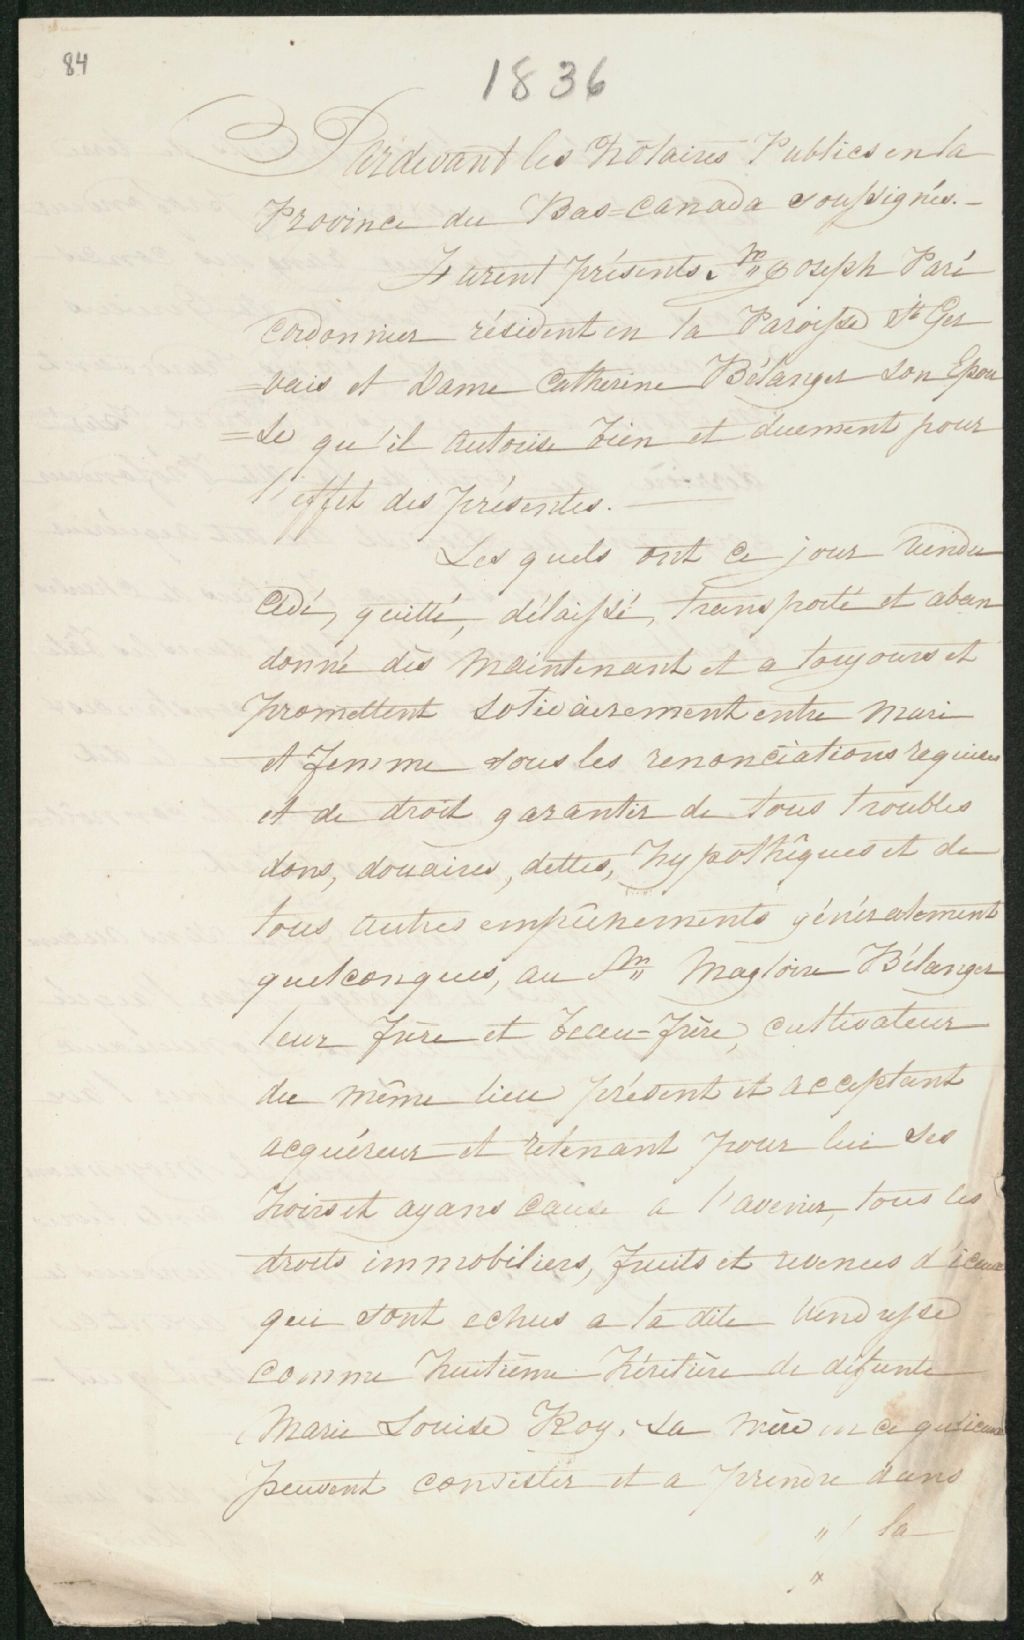 84
1836
Pardevant les Notaires Publics en la
Province du Bas=Canada soussignés.-
Furent présents. Sr. Joseph Paré
Cordonnier résident en la Paroisse St Ger
=vais et Dame Catherine Bélanger son Epou
=se qu'il autorise bien et duement pour
l'effet des présentes.
Les quels ont ce jour vendu
cédé, quitté, délaissé, transporté et aban
donné dès maintenant et a toujours et
promettent solidairement entre mari
et femme sous les renonciations requises
et de droit garantir de tous troubles
dons, douaires, dettes, hypothêques et de
tous autres empêchements généralement
quelconques, au Sr. Magloire Bélanger
leur frère et beau=frère, cultivateur
du même lieu présent et acceptant
acquéreur et rétenant pour lui ses
hoirs et ayans cause a l'avenir, tous les
droits immobiliers, fruits et revenus d'iceux
qui sont echus a la dite Vendresse
comme huitième héritière de défunte
Marie Louise Roy, sa mère en ce qu'iceux
peuvent consister et a prendre dans
" / la
"